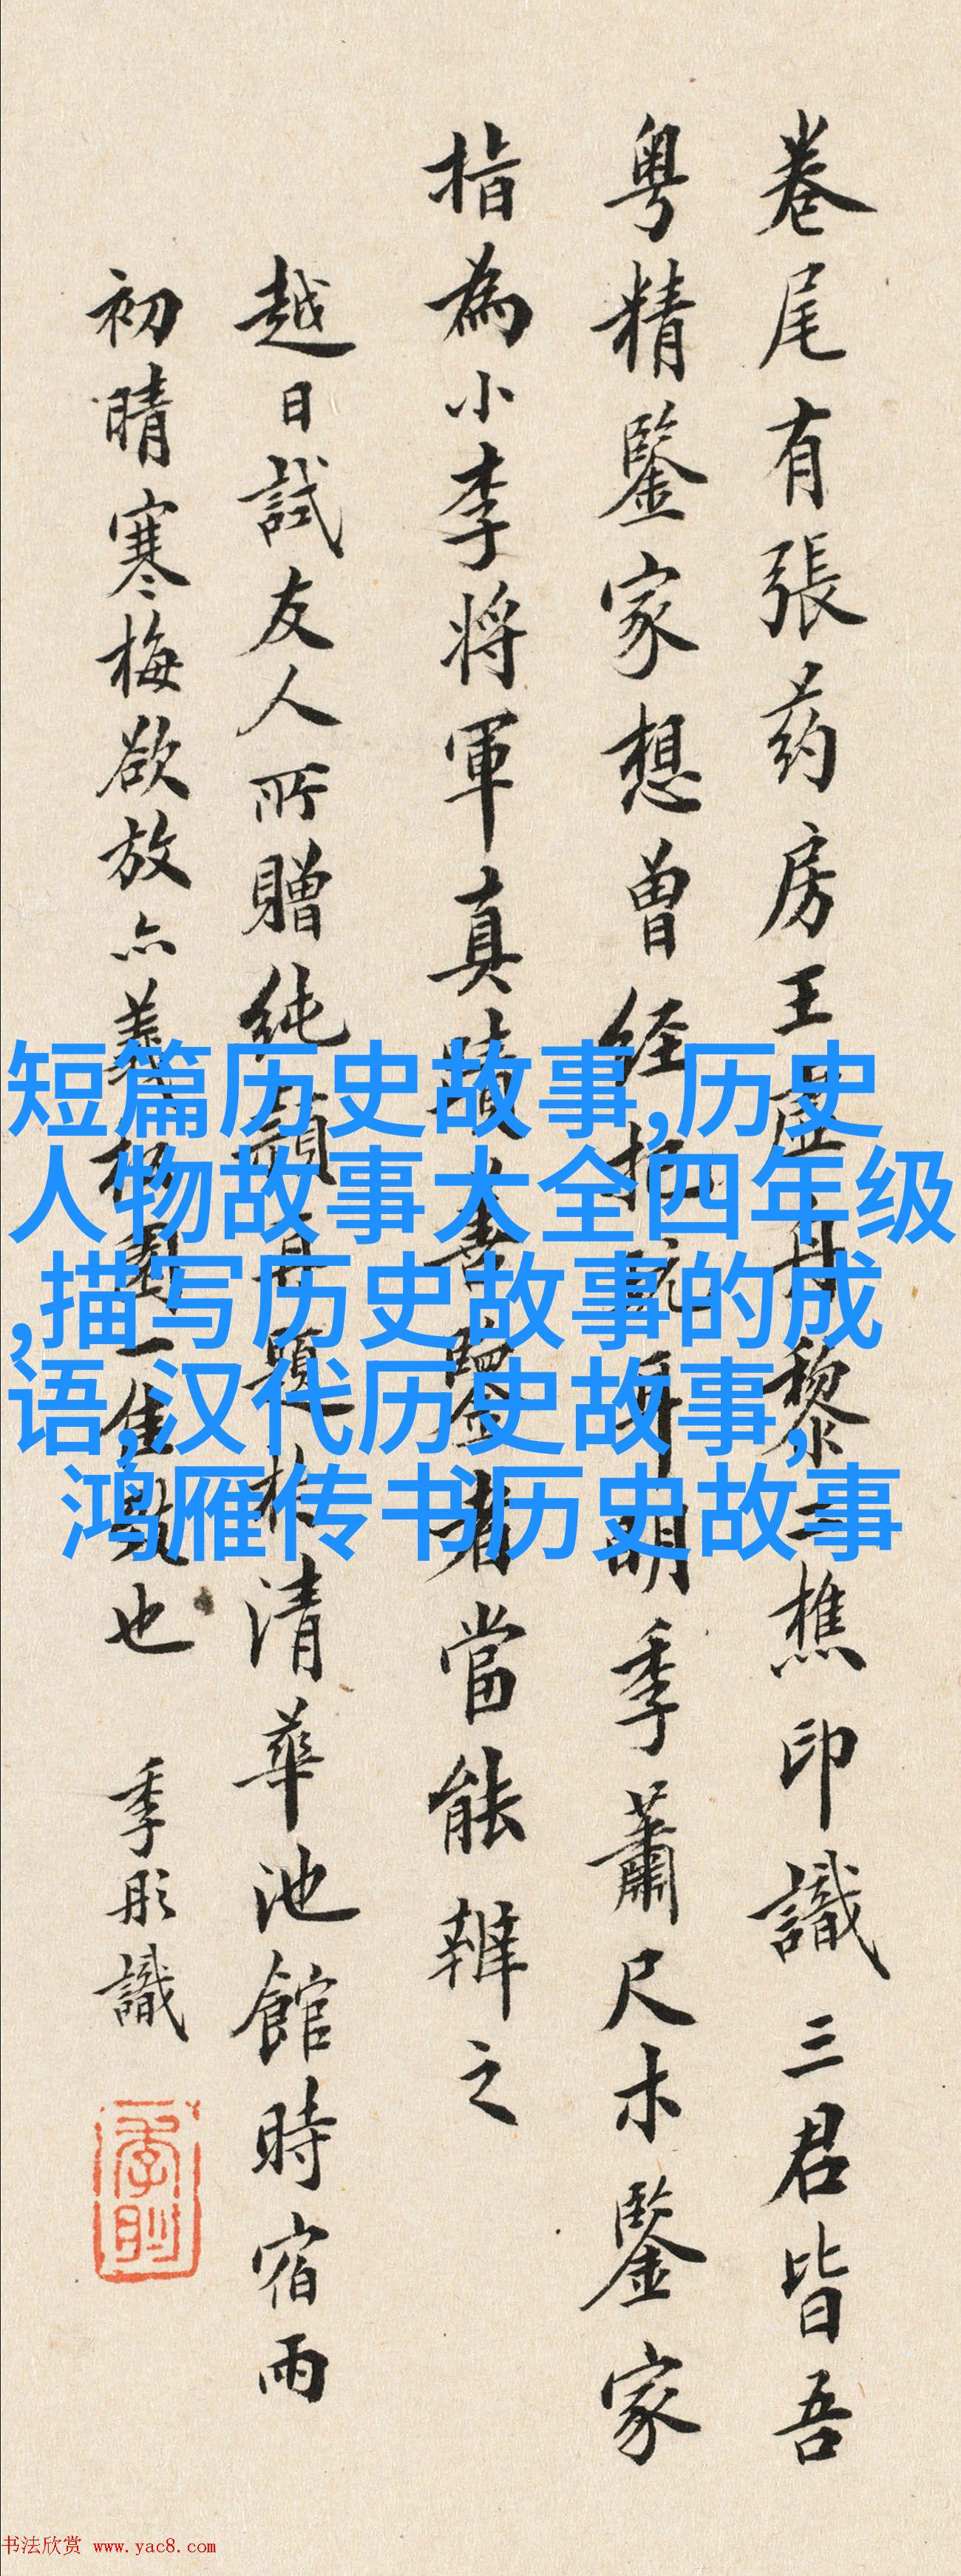 卷尾有張药房王虚舟黎二樵印識三君皆吾
粤精鑒家想曾經抵玩所明季蕭尺木鑒家
指為小李將軍真蹟書鑒者當能辨之
越日試友人所贈純穎再題於清華池館時宿雨
初晴寒梅欲放亦義柳園一佳致也
季彤識
短篇历史故事,历史
人物故事大全四年级
,描写历史故事的成
语,汉代历史故事,
鸿雁传书历史故事
书法欣赏 www.yac8.com